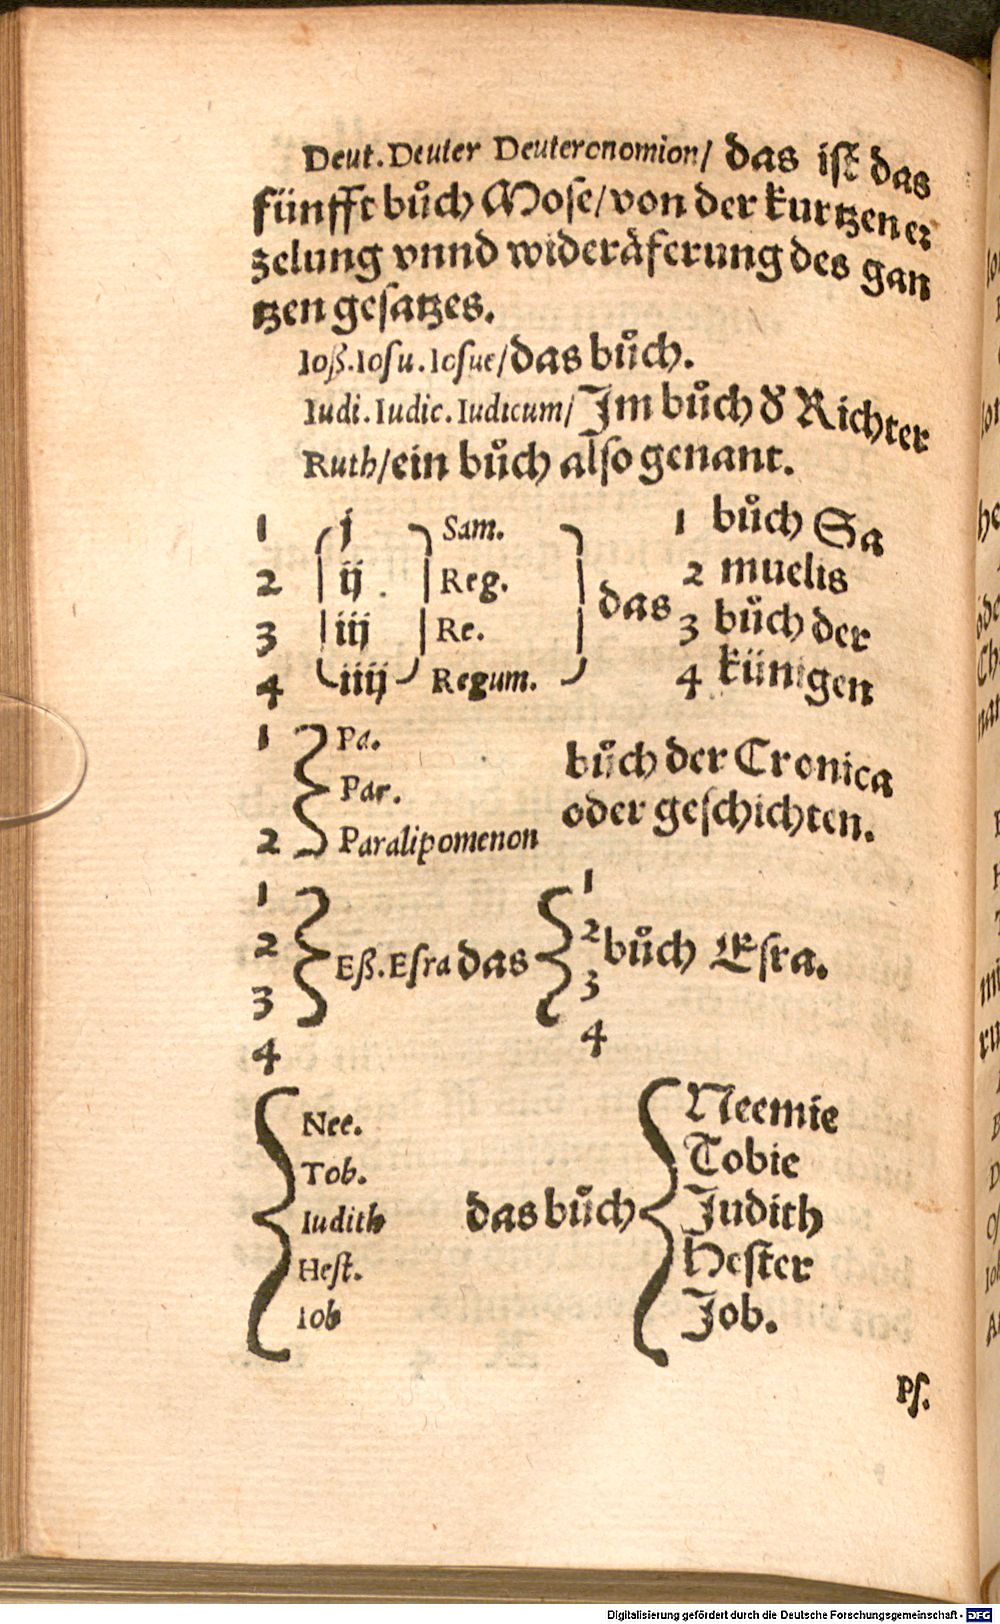 Deut. Deuter Deuteronomion/ das ist das
fünfft bůch Mose/ von der kurtzen er
zelung vnnd wideräferung des gan
tzen gesatzes.
Ioß. Iosu. Iosue/ das bůch.
Iudi. Iudic. Iudicum/ Im bůch d' Richter
Ruth/ ein bůch also genant.
1 j Sam. 1 bůch Sa
2 ij Reg. das 2 muelis
3 iij Re. 3 bůch der
4 iiij Regum. 4 künigen
1 Pa. bůch der Cronica
Par. oder geschichten.
2 Paralipomenon
1 1
2 Eß. Esra das 2 bůch Esra.
3 3
4 4
Nee. Neemie
Tob. Tobie
Iudith das bůch Judith
Hest. Hester
Iob Job.
Ps.
Digitalisierung gefördert durch die Deutsche Forschungsgemeinschaft - DFG